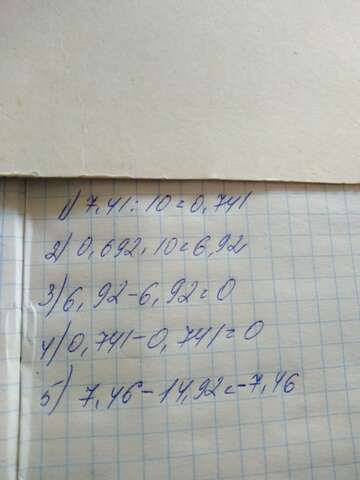 1) 7,41:10=0,741
2) 0,692.10=6,92
3) 6,92-6,92=0
4) 0,741-0,741=0
5) 7,46-14,92=-7,46